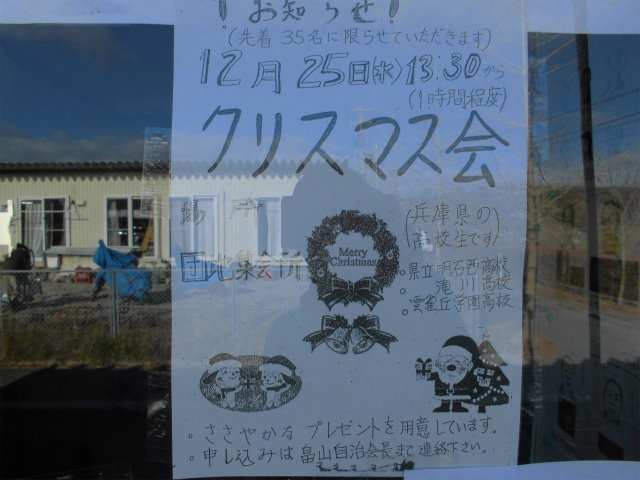 お知らせ!
(先着35名に限らせていただきます)
12月25日(水)13:30から
(1時間程度)
クリスマス会
場所
団地集会所
(兵庫県の
高校生です)
。県立明石西高校
。滝川高校
。雲雀丘学園高校
Merry
Christmas
。ささやかなプレゼントを用意しています。
。申し込みは畠山自治会長まで連絡下さい。